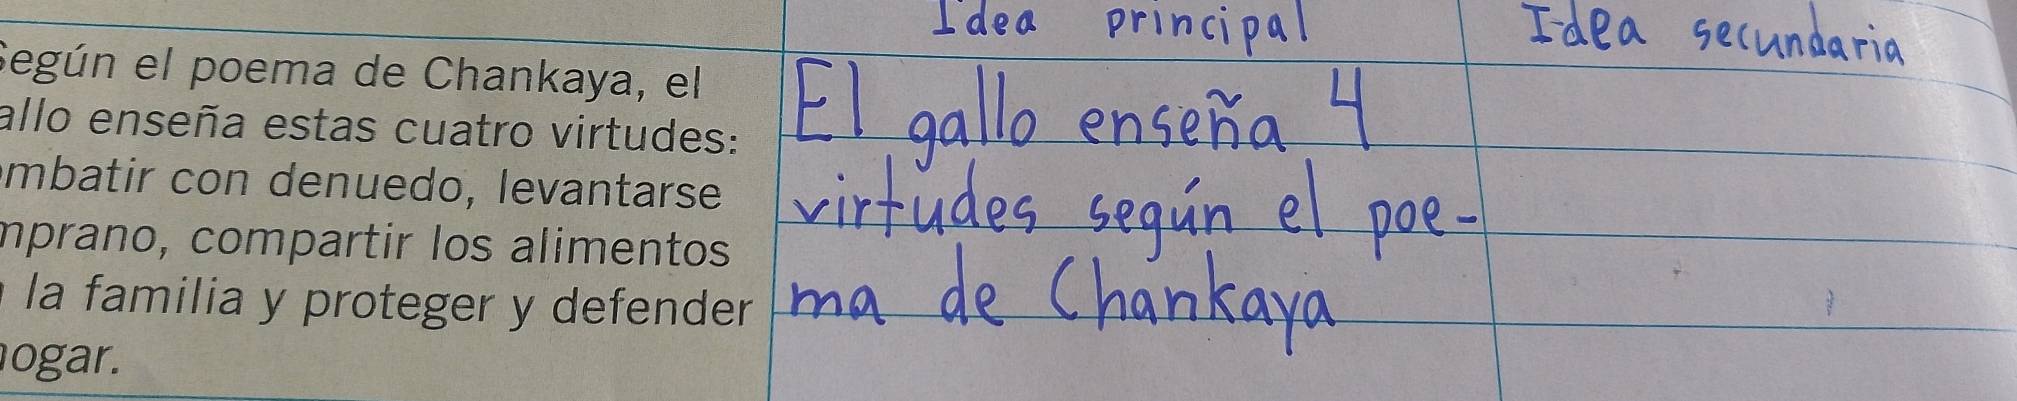 Idea principal
Idea secundaria
Según el poema de Chankaya, el
allo enseña estas cuatro virtudes:
mbatir con denuedo, levantarse
mprano, compartir los alimentos
la familia y proteger y defender
ogar.
El gallo enseña 4
virtudes según el poe-
ma de Chankaya